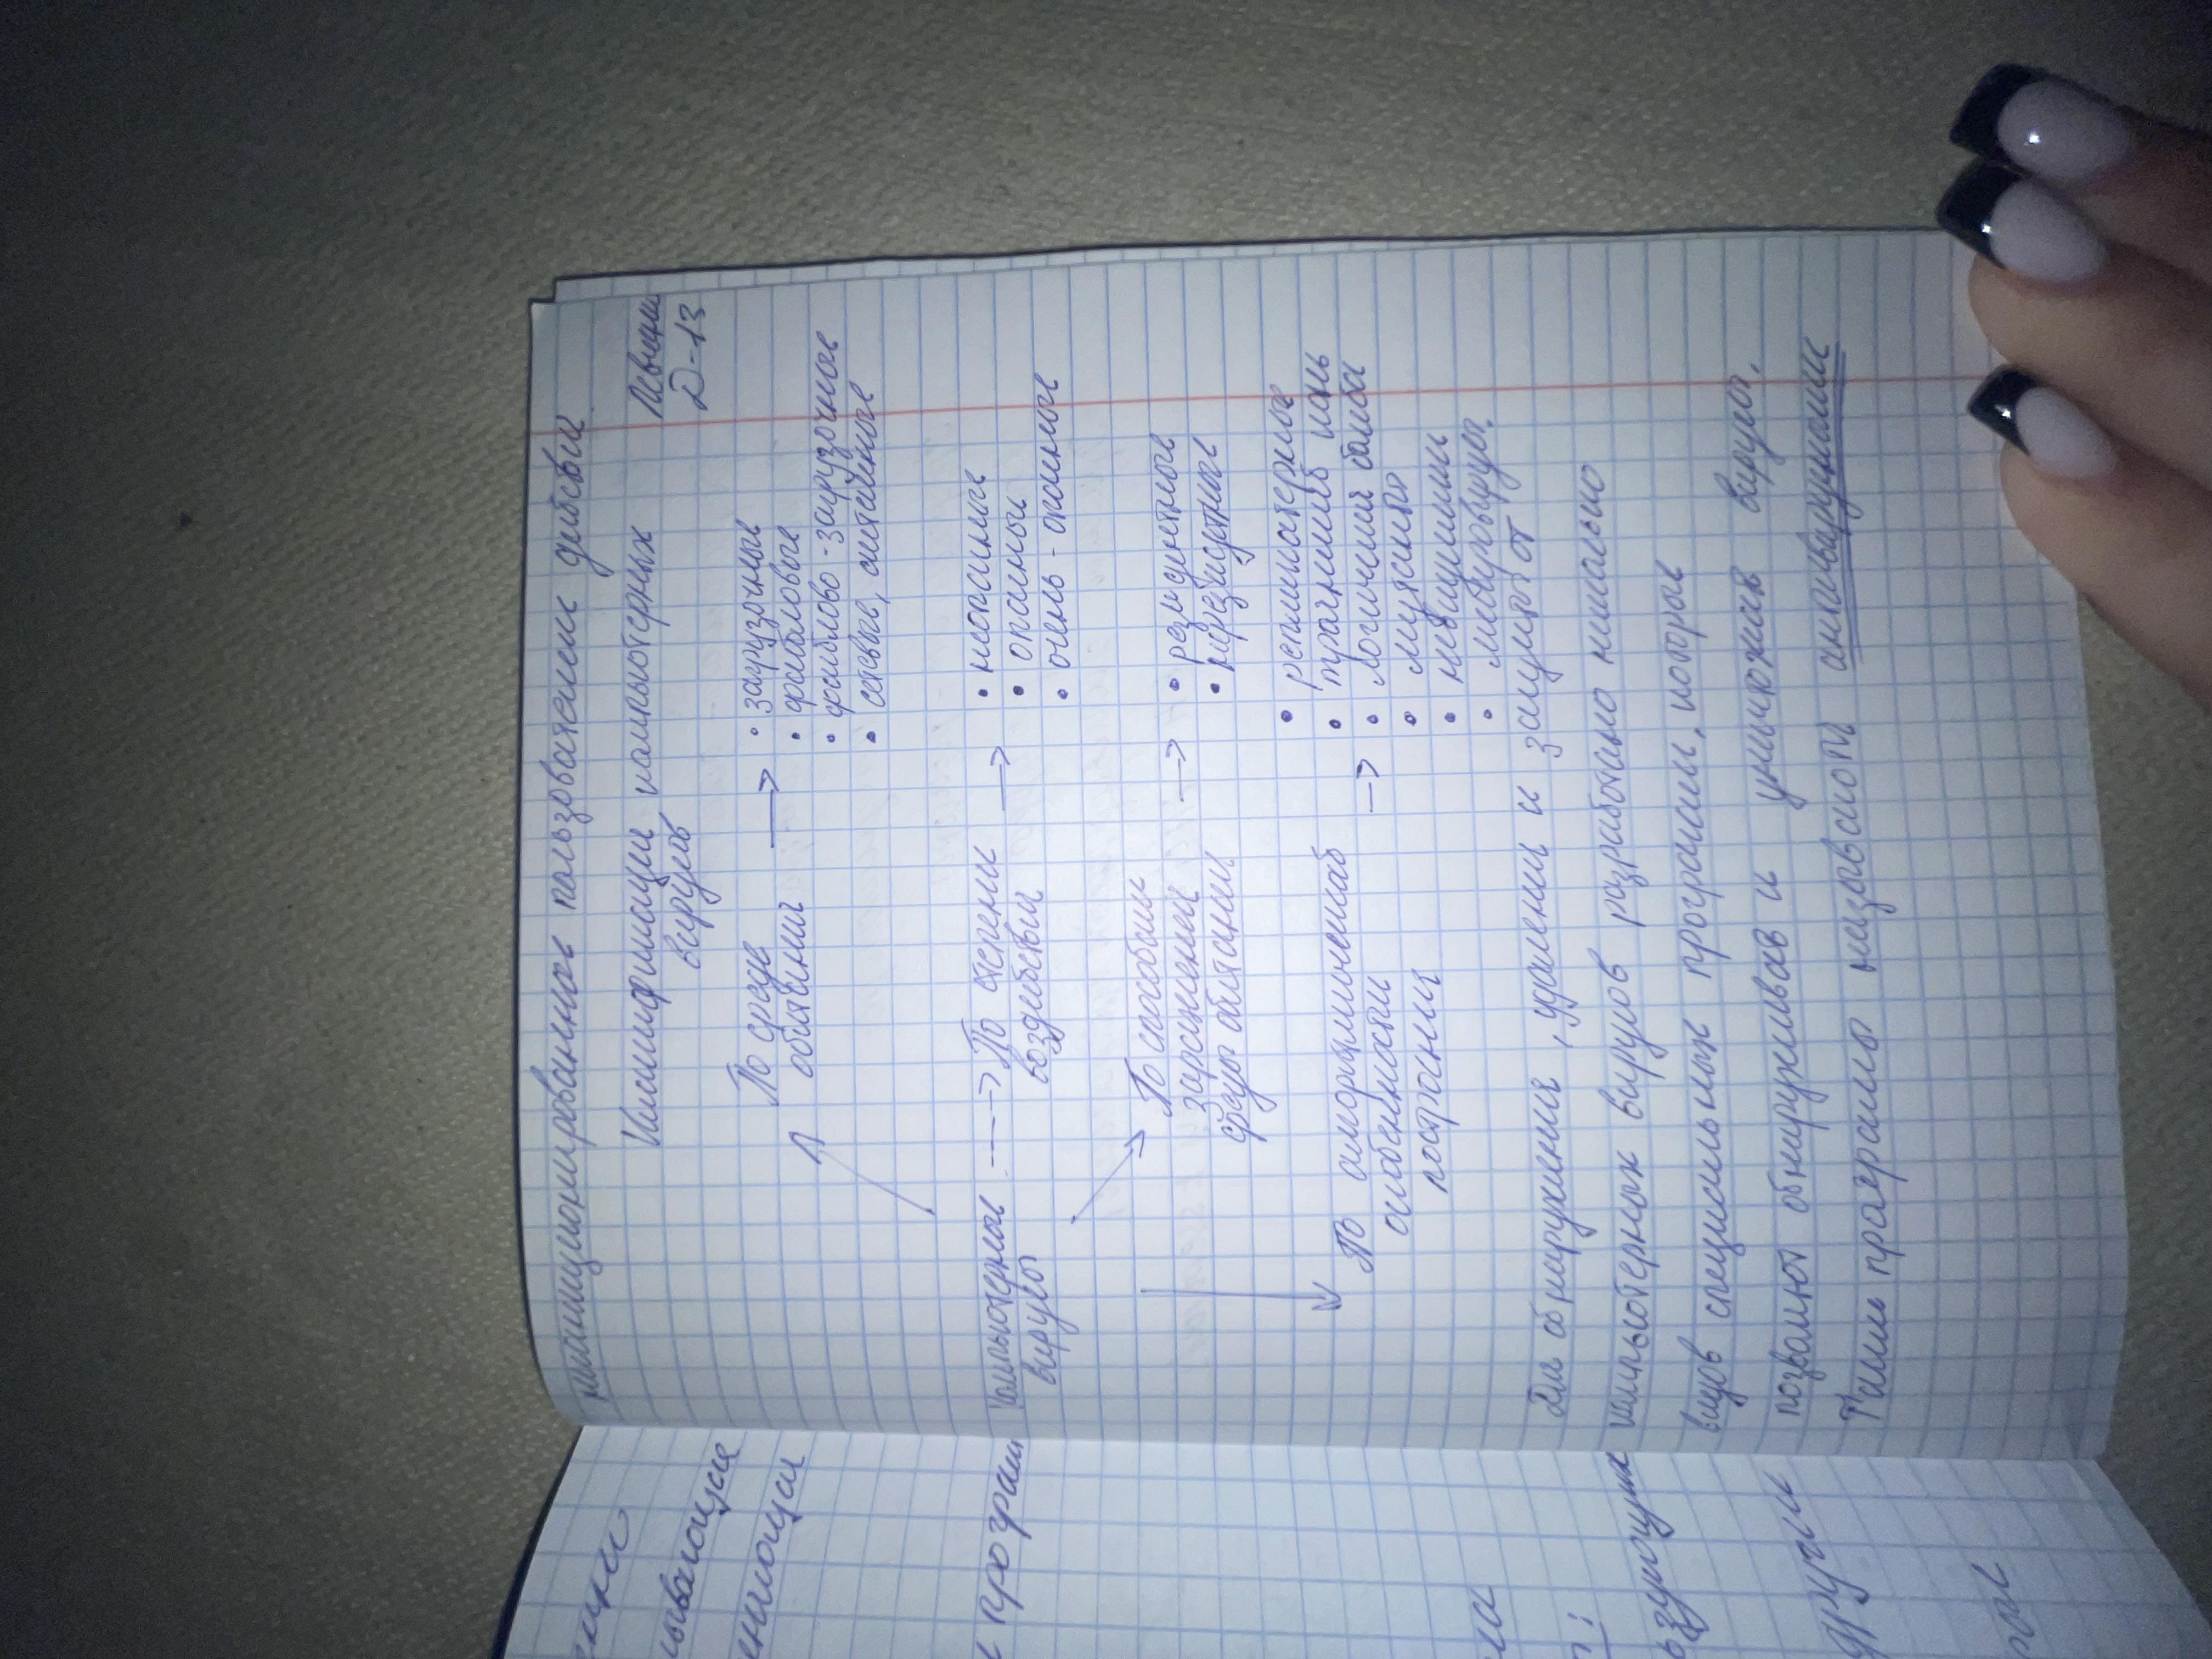 несанкционированные пользователем действия.
Классификация компьютерных
вирусов
Д-13
По среде обитания →
• загрузочные
• файловые
• файлово-загрузочные
• сетевые, системные
компьютерные вирусы
По степени воздействия →
• неопасные
• опасные
• очень-опасные
По способам заражения среды обитания →
• резидентные
• нерезидентные
По алгоритмической особенности построения →
• репликаторные
• троянский конь
• логический бомба
• мутанты
• невидимки
• макровирусы.
Для обнаружения, удаления и защиты от
компьютерных вирусов разработано несколько
видов специальных программ, которые
позволяют обнаруживать и уничтожать вирусы.
Такие программы называют антивирусными
програм
другим